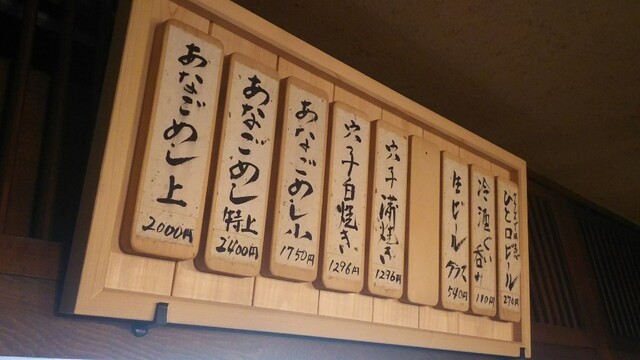 あなごめし上
2000円
あなごめし特上
2400円
あなごめし小
1750円
穴子白焼き
1296円
穴子蒲焼き
1296円
生ビール
グラス
540円
冷酒ぐい呑み
ひとロビール
270円